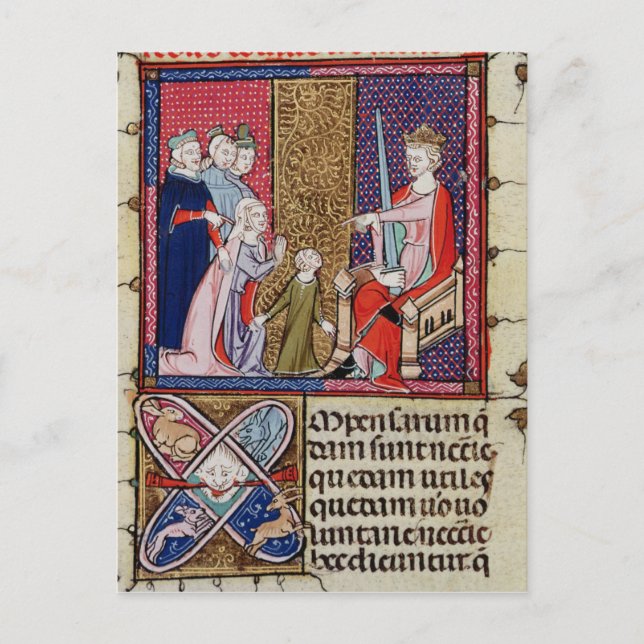 Mpensarum q
dam sunt neccie
quedam utiles
quedam uo uo
luntarie neccie
hee dicuntur q